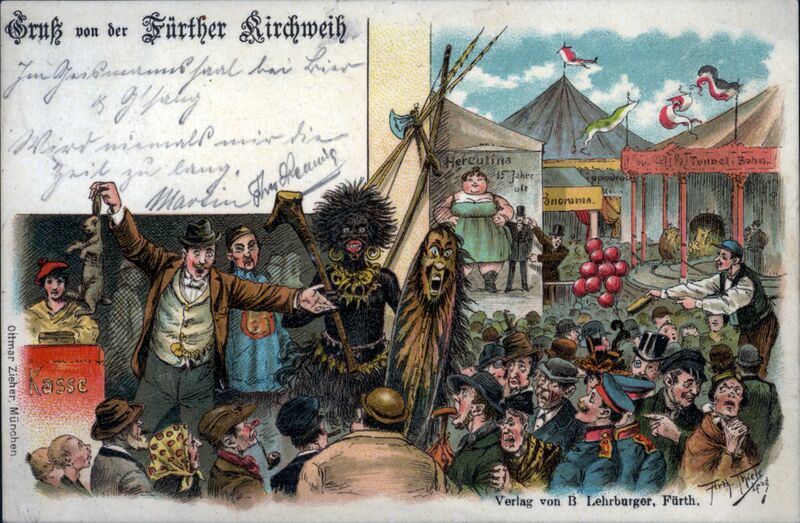 Gruß von der Fürther Kirchweih
Im Geismannssaal bei Bier
& G'sang
Wird niemals mir die
Zeit zu lang.
Martin
Herculina
15 Jahre
alt
Panorama.
Tunnel-Bahn.
Kasse
Ottmar Zieher, München.
Verlag von B Lehrburger, Fürth.
Arth. Thiele